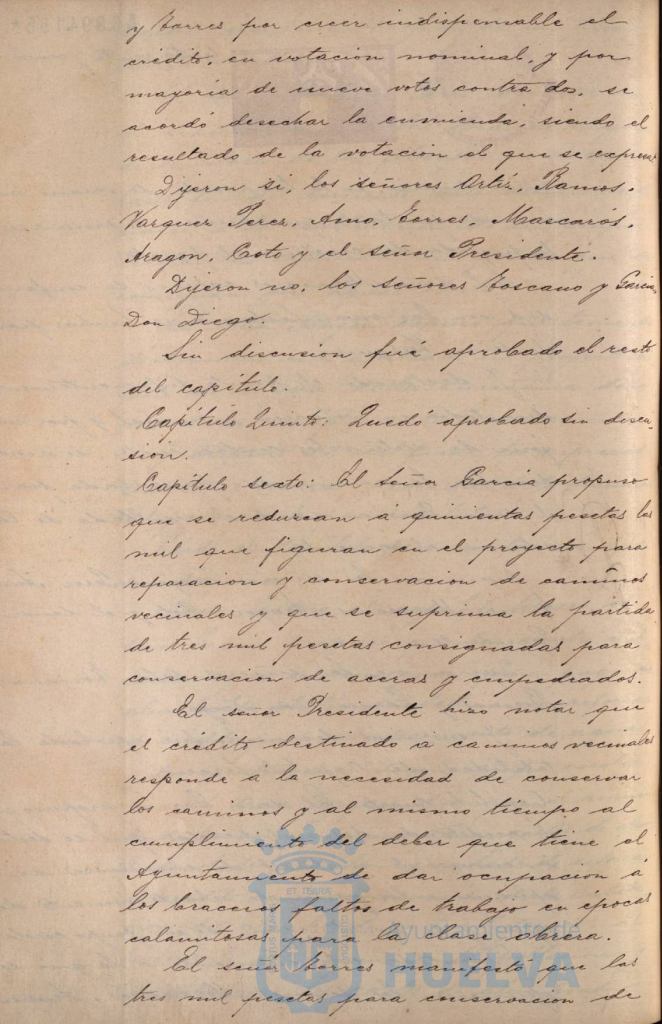 y Torres por creer indispensable el
crédito, en votacion nominal, y por
mayoría de nueve votos contra dos, se
acordó desechar la enmienda, siendo el
resultado de la votacion el que se expresa
Dijeron si, los señores Ortiz, Ramos,
Vazquez Perez, Amo, Torres, Mascarós,
Aragon, Coto y el señor Presidente.
Dijeron no, los señores Toscano y Garcia,
Don Diego.
Sin discusion fué aprobado el resto
del capítulo.
Capítulo Quinto: Quedó aprobado sin discu-
sion.
Capítulo sexto: El señor Garcia propuso
que se reduzcan á quinientas pesetas las
mil que figuran en el proyecto para
reparacion y conservacion de caminos
vecinales y que se suprima la partida
de tres mil pesetas consignadas para
conservacion de aceras y empedrados.
El señor Presidente hizo notar que
el crédito destinado á caminos vecinales
responde á la necesidad de conservar
los caminos y al mismo tiempo al
cumplimiento del deber que tiene el
Ayuntamiento de dar ocupacion á
los braceros faltos de trabajo en épocas
calamitosas para la clase obrera.
El señor Torres manifestó que las
tres mil pesetas para conservacion de
Ayuntamiento de
HUELVA